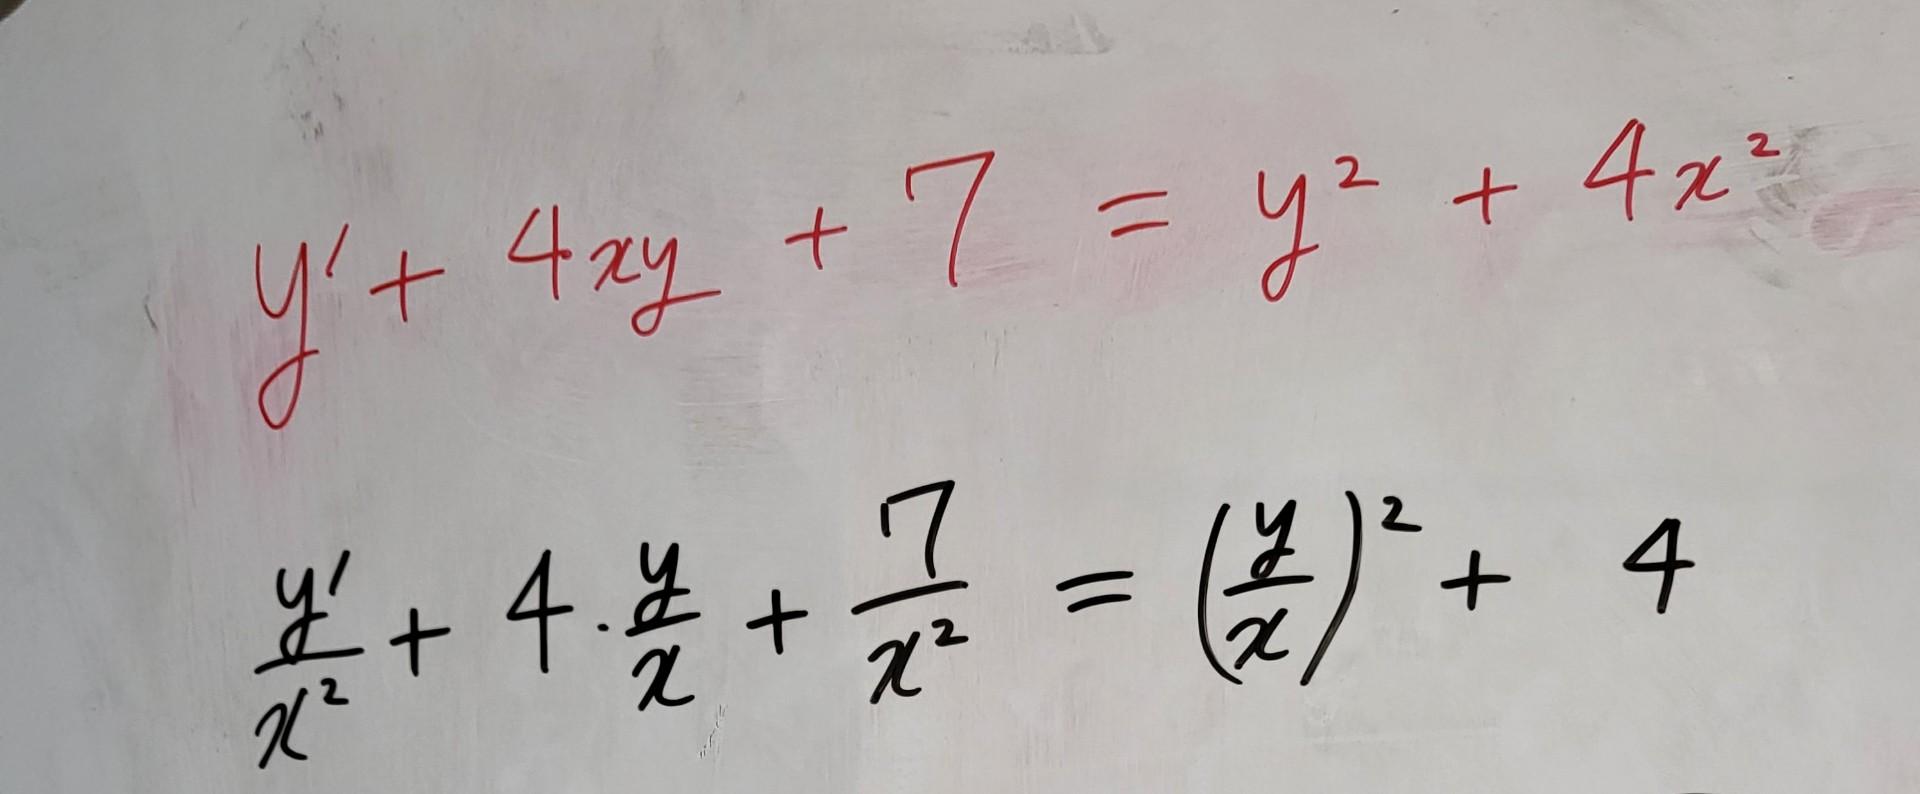 y' + 4xy + 7 = y² + 4x²
y'/x² + 4·y/x + 7/x² = (y/x)² + 4